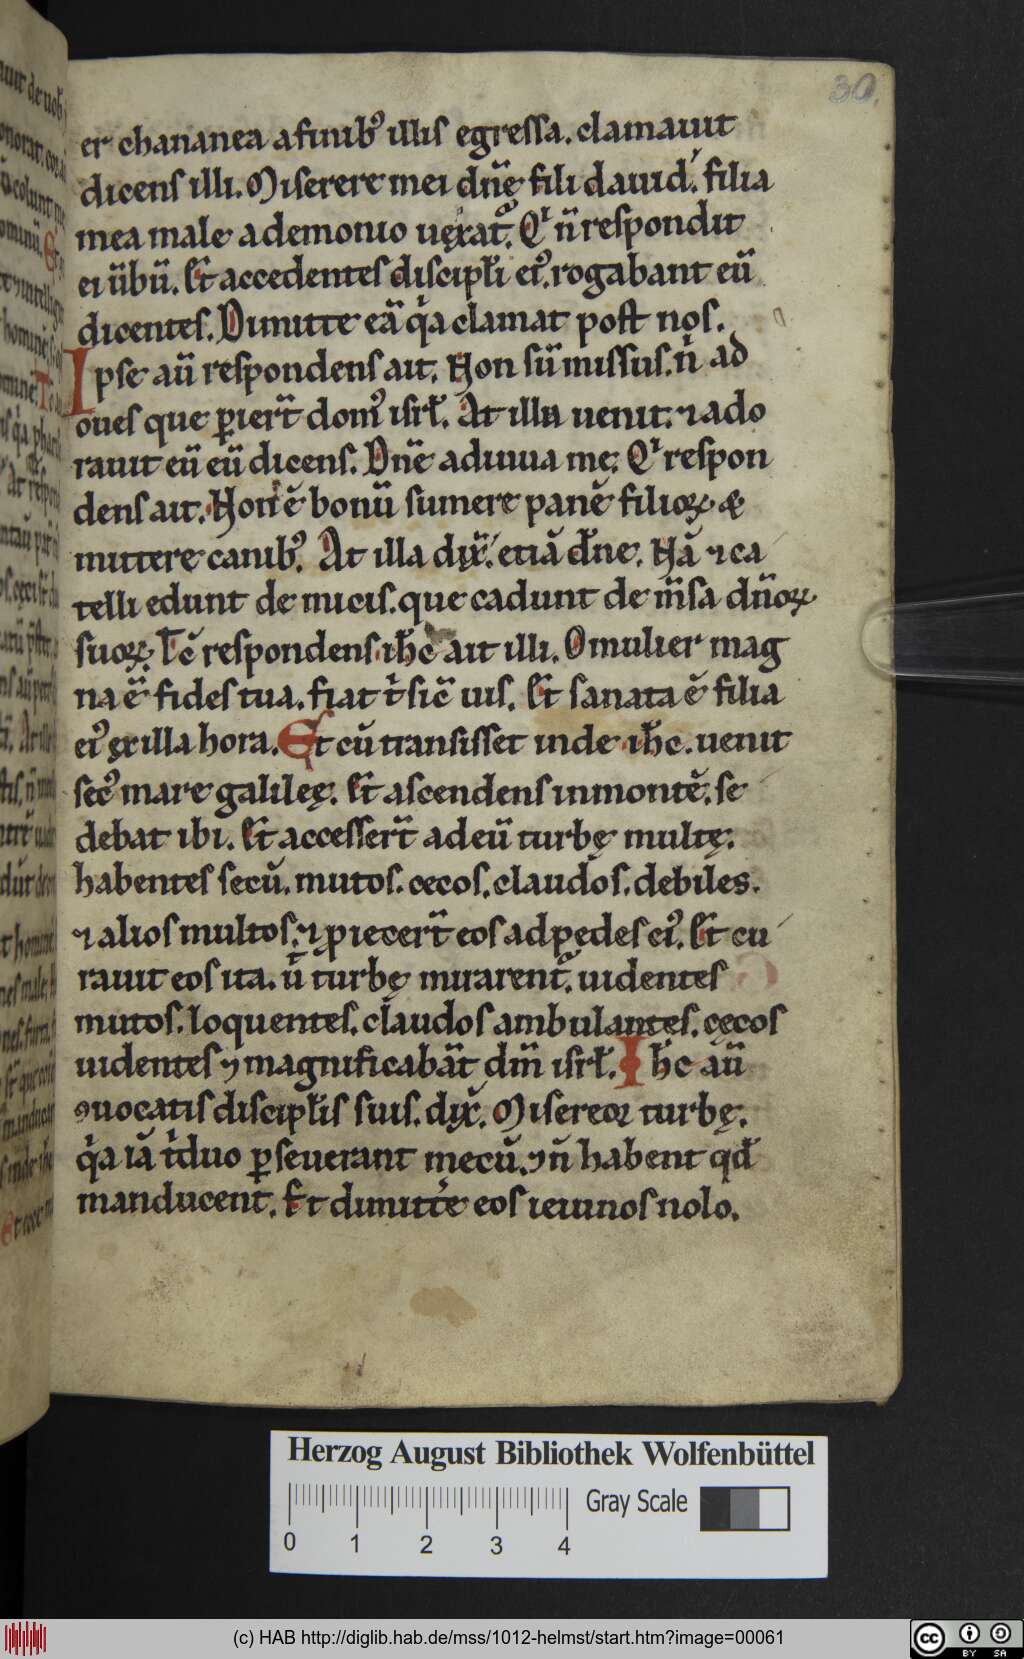 30.
er chananea a finib᾿ illis egressa. clamauit
dicens illi. Miserere mei dn̄ę fili dauid. filia
mea male a demonio uęxat᷑. Qͥ n̄ respondit
ei ūbū. Et accedentes discipłi ei᾿. rogabant eū
dicentes. Dimitte eā qͥa clamat post nos.
Ipse aū respondens ait. Non sū missus. nͥ ad
oues que ꝑiert̄ dom᾿ isrł. At illa uenit. ⁊ ado
rauit eū eū dicens. Dn̄e adiuua me. Qͥ respon
dens ait. Non ē bonū sumere panē filioꝝ &
mittere canib᾿. At illa dix̄. etiā dn̄e. Nā ⁊ ca
telli edunt de micis. que cadunt de m̄sa dn̄oꝝ
suoꝝ. Tc̄ respondens ih̄c ait illi. O mulier mag
na ē fides tua. fiat tͥ sic̄ uis. Et sanata ē filia
ei᾿ ex illa hora. Et cū transisset inde ih̄c. uenit
sec᾿ mare galileę. Et ascendens in montē. se
debat ibi. Et accessert̄ ad eū turbę multę.
habentes secū. mutos. cecos. claudos. debiles.
⁊ alios multos. ⁊ ꝓiecert̄ eos ad pedes ei᾿. Et cu
rauit eos ita. ūt turbę mirarent᷑. uidentes
mutos. loquentes. claudos ambulantes. cęcos
uidentes ⁊ magnificabāt dm̄ isrł. Ih̄c aū
ꝯuocatis discipłis suis. dix̄. Misereor turbę.
qͥa iā tͥduo ꝑseuerant mecū. ⁊ n̄ habent qđ
manducent. Et dimittͤe eos ieiunos nolo.
Herzog August Bibliothek Wolfenbüttel
Gray Scale
0 1 2 3 4
(c) HAB http://diglib.hab.de/mss/1012-helmst/start.htm?image=00061
cc BY SA